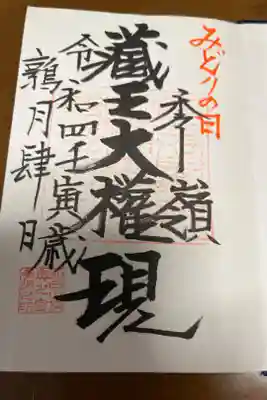 みどりの日
秀嶺
藏王大權現
令和四壬寅歳
鶉月肆日